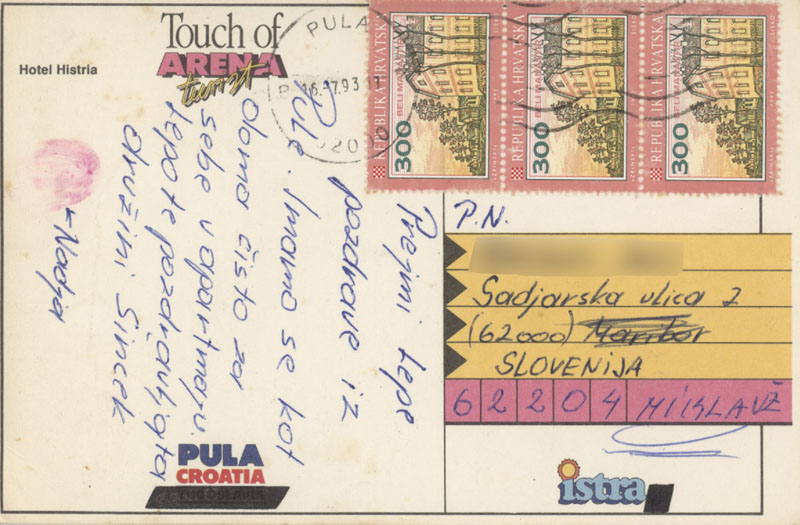 Hotel Histria
Touch of
ARENA
turist
PULA
16.-7.93 17
REPUBLIKA HRVATSKA
300
REPUBLIKA HRVATSKA
300
REPUBLIKA HRVATSKA
300
Prejmi lepe
pozdrave iz
Pule. Imamo se kot
doma čisto za
sebe v apartmaju.
Lepote pozdravljata
družini Sincek
Nadja
P.N.
Sadjarska ulica 2
(62000) Maribor
SLOVENIJA
62204 MIKLAVŽ
PULA
CROATIA
istra